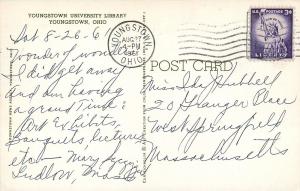 YOUNGSTOWN UNIVERSITY LIBRARY
YOUNGSTOWN, OHIO
Sat 8-26-6
Wonder of wonders
I did get away
and am having
a grand time:
Art Exhibits,
Banquets, lectures,
etc — Mary
Ludlow, Mass
YOUNGSTOWN,
AUG 27
4-PM
1961
OHIO
U.S. POSTAGE 3¢
LIBERTY
POST CARD
Miss Ida Hubbell
20 Granger Place
West Springfield
Massachusetts